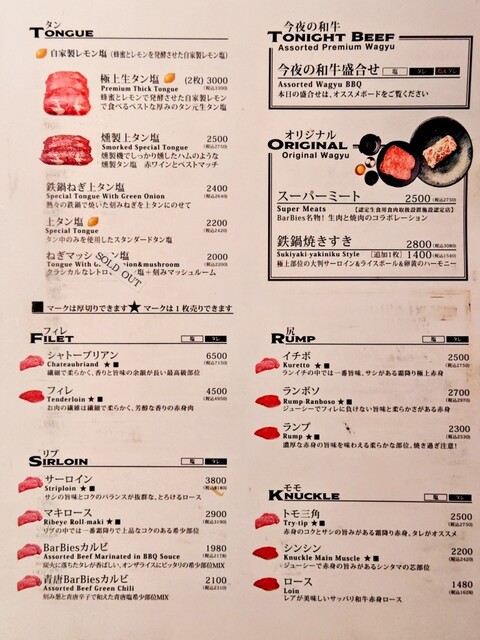 タン
TONGUE
自家製レモン塩 (蜂蜜とレモンを発酵させた自家製レモン塩)
極上生タン塩 (2枚) 3000
Premium Thick Tongue (税込3300)
蜂蜜とレモンで発酵させた自家製レモン
で食べるベストな厚みのタン元生タン塩
燻製上タン塩 2500
Smorked Special Tongue (税込2750)
燻製機でしっかり燻したハムのような
燻製タン塩 赤ワインとベストマッチ
鉄鍋ねぎ上タン塩 2400
Special Tongue with Green Onion (税込2640)
熱々の鉄鍋で焼いた刻みねぎを上タンにのせて
上タン塩 2200
Special Tongue (税込2420)
タン中のみを使用したスタンダードタン塩
ねぎマッシュタン塩 2000
Tongue With Onion&mushroom (税込2200)
SOLD OUT
■ マークは厚切りできます ★ マークは1枚売りできます
フィレ
FILET 塩 タレ
シャトーブリアン 6500
Chateaubriand ★ ■ (税込7150)
繊細で柔らかく、香りと旨味の余韻が長い最高級部位
フィレ 4500
Tenderloin ★ ■ (税込4950)
お肉の繊維は繊細で柔らかく、芳醇な香りの赤身肉
リブ
SIRLOIN 塩 タレ
サーロイン 3800
Striploin ★ ■ (税込4180)
サシの旨味とコクのバランスが抜群な、とろけるロース
マキロース 2900
Ribeye Roll-maki ★ ■ (税込3190)
リブの中では一番霜降りで上品なコクのある希少部位
BarBiesカルビ 1980
Assorted Beef Marinated in BBQ Souce (税込2178)
炭火に落ちたタレが香ばしい、オンザライスにピッタリの希少部位MIX
青唐BarBiesカルビ 2100
Assorted Beef Green Chili (税込2310)
刻み葱と青唐辛子で和えた青唐塩希少部位MIX
今夜の和牛
TONIGHT BEEF
Assorted Premium Wagyu
今夜の和牛盛合せ 塩 タレ
Assorted Wagyu BBQ
本日の盛合せは、オススメボードをご覧ください
オリジナル
ORIGINAL
Original Wagyu
スーパーミート 2500 (税込2750)
Super Meats 【認定生食用食肉取扱設備施設認定店】
BarBies名物! 生肉と焼肉のコラボレーション
鉄鍋焼きすき 2800 (税込3080)
Sukiyaki-yakiniku Style [追加1枚] 1400 (税込1540)
極上部位の大判サーロイン&ライスボール&卵黄のハーモニー
尻
RUMP 塩 タレ
イチボ 2500
Kuretto ★ ■ (税込2750)
ランイチの中では一番旨味、サシがある霜降り極上赤身
ランボソ 2700
Rump-Ranboso ★ ■ (税込2970)
ジューシーでフィレに負けない旨味と柔らかさがある赤身
ランプ 2300
Rump ★ ■ (税込2530)
濃厚な赤身の旨味を味わえる柔らかな部位、焼き過ぎ注意!
モモ
KNUCKLE 塩 タレ
トモ三角 2500
Try-tip ★ ■ (税込2750)
赤身のコクとサシの旨みが濃厚な霜降り赤身、タレがオススメ
シンシン 2200
Knuckle Main Muscle ★ ■ (税込2420)
ジューシーで赤身の旨みがあるシンタマの芯部位
ロース 1480
Loin (税込1628)
レアが美味しいサッパリ和牛赤身ロース